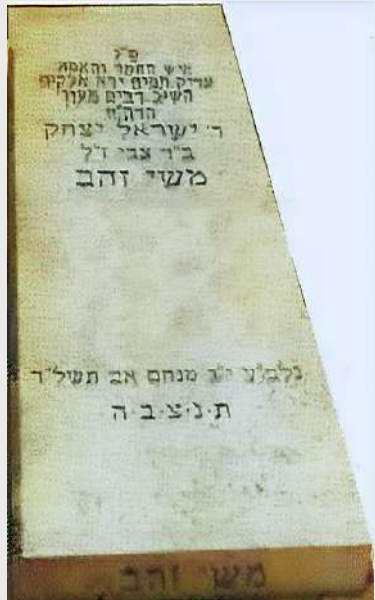 פ"נ
איש החסד והאמת
צדיק תמים ירא אלקים
השיב רבים מעון
הרה"ח
ר' ישראל יצחק
ב"ר צבי ז"ל
משי זהב
נלב"ע י"ג מנחם אב תשל"ד
ת.נ.צ.ב.ה
משי זהב